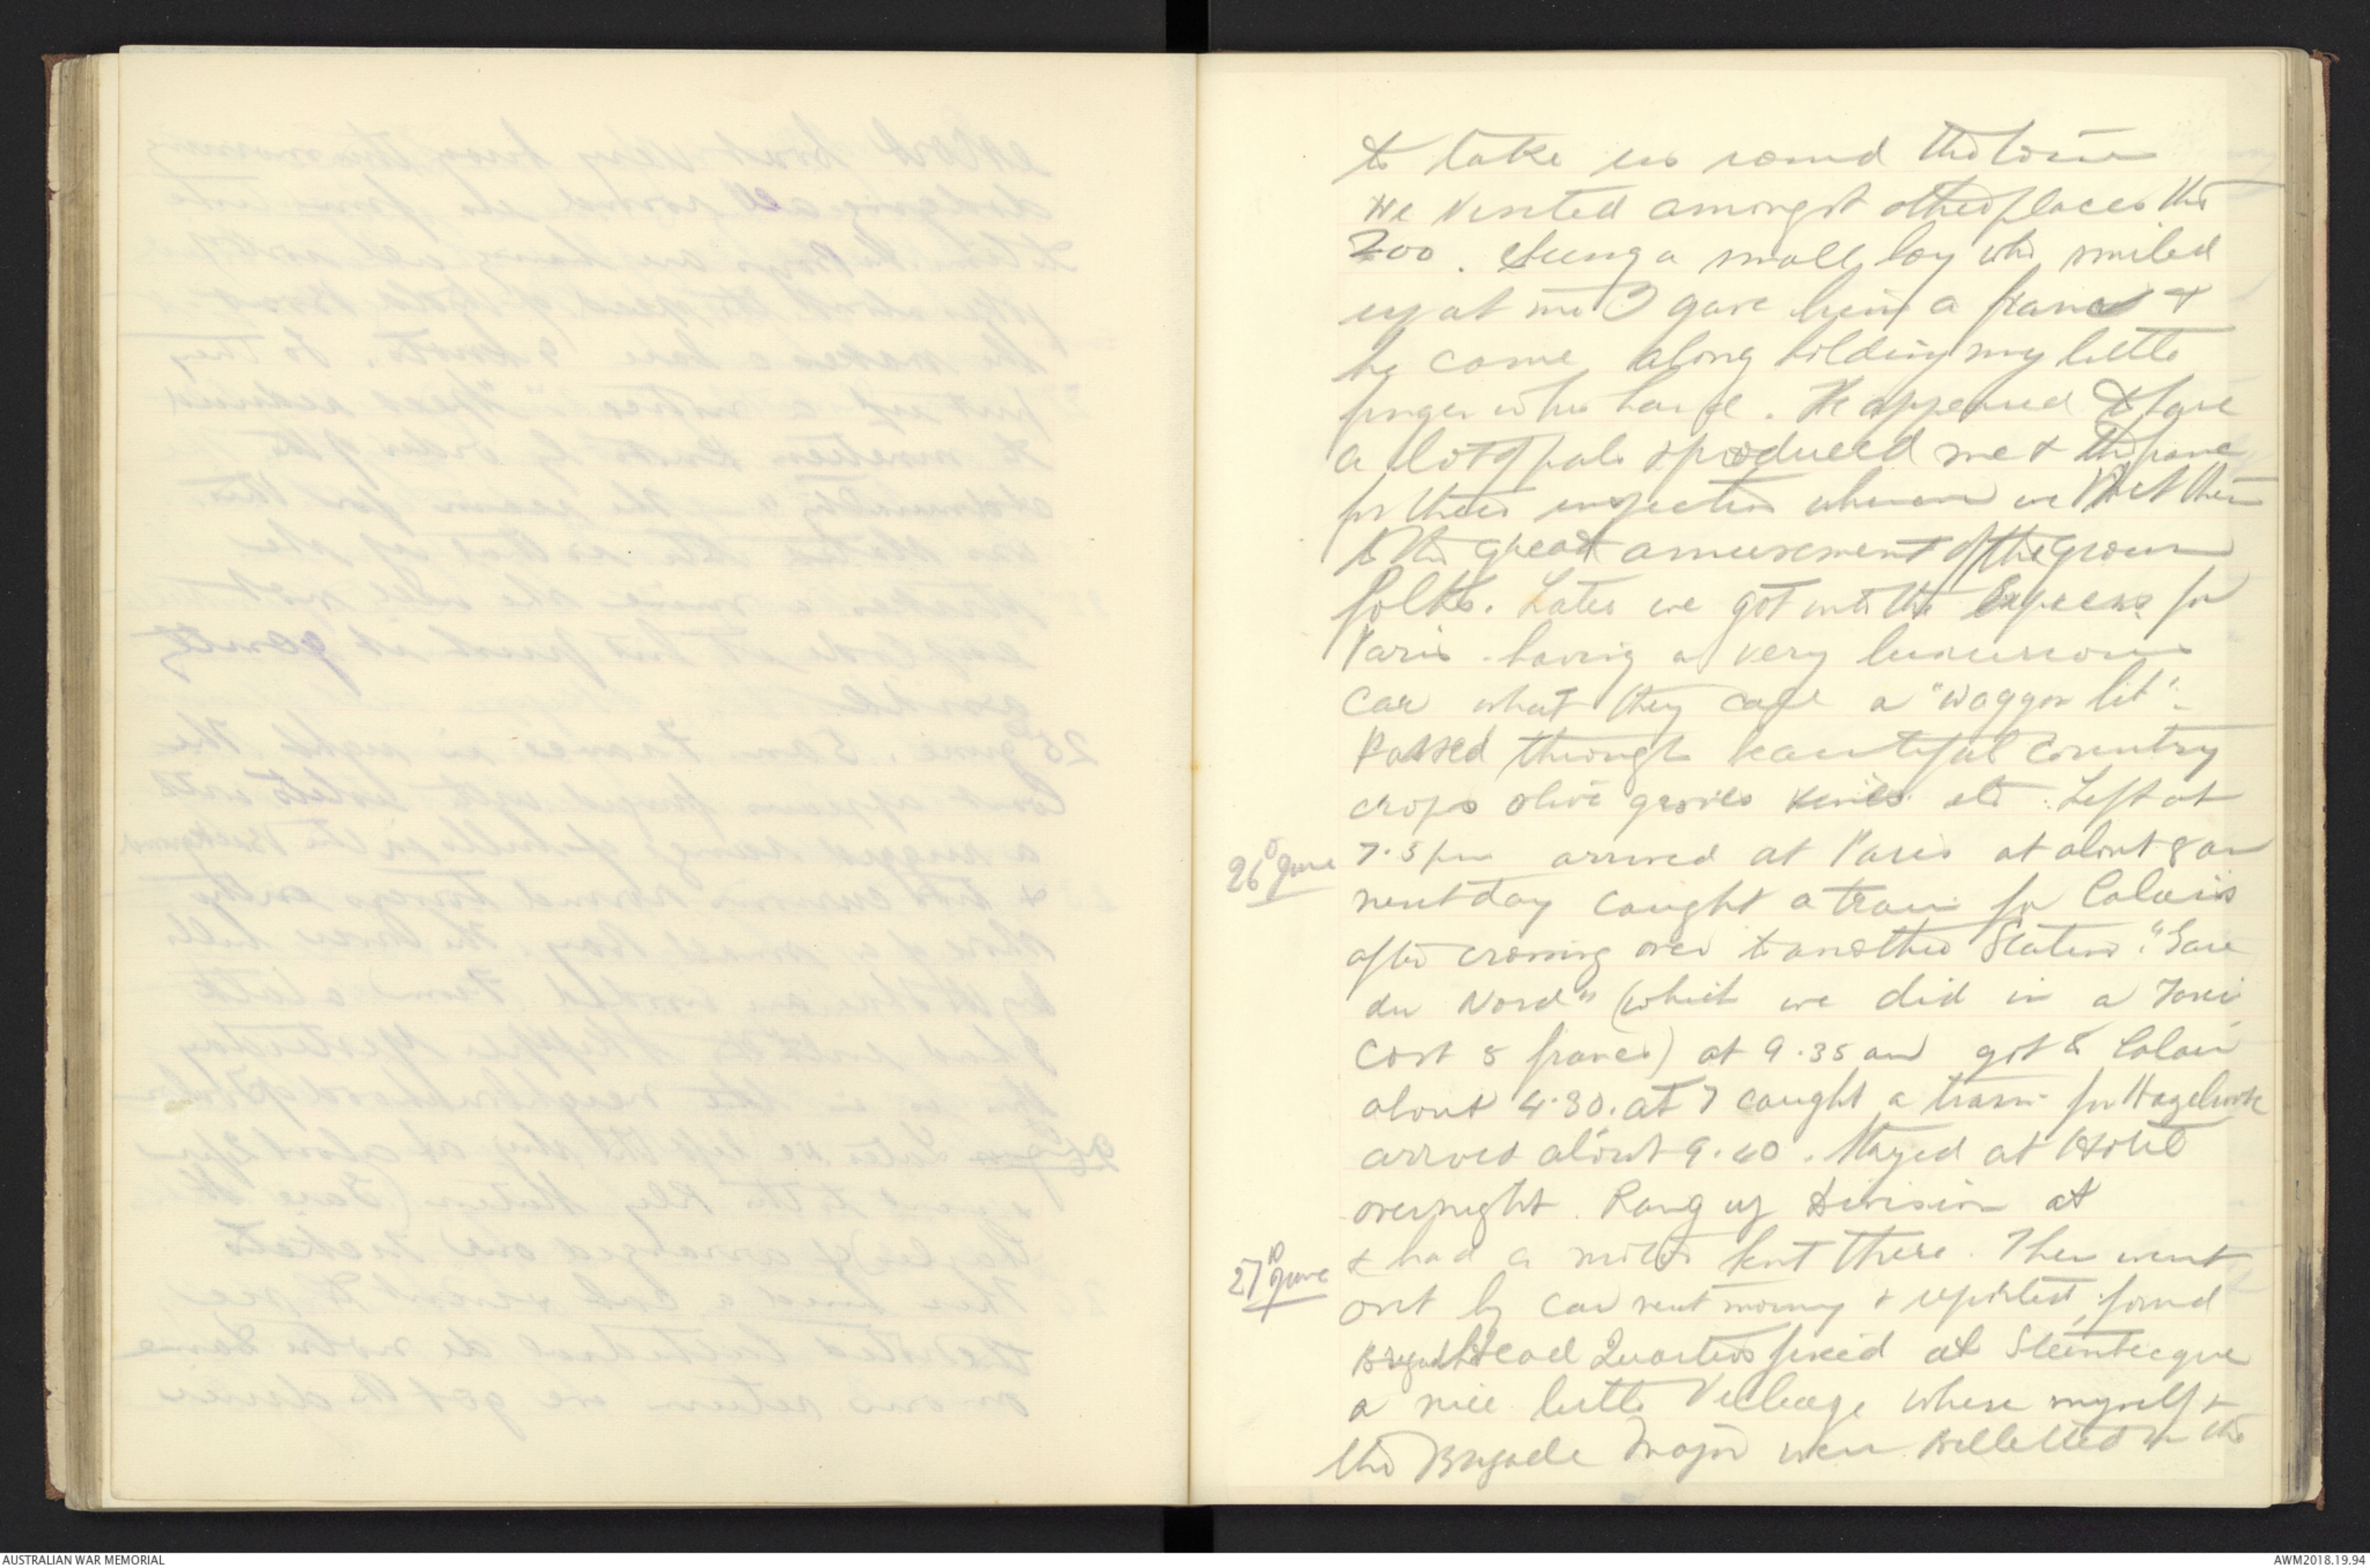 to take us round the town
We visited amongst other places the
Zoo. Seeing a small boy who smiled
up at me I gave him a franc &
he came along holding my little
finger in his hand. He appeared to have
a lot of pals & produced me & the franc
for their inspection whereon we
to the great amusement of the grown
folks. Later we got into the Express for
Paris having a very luxurious
car what they call a "Waggon lit".
Passed through beautiful country
crops olive groves vines etc. Left at
26th June
7.5 pm arrived at Paris at about 8 am
next day caught a train for Calais
after crossing over to another Station "Gare
du Nord" (which we did in a Taxi
cost 5 francs) at 9.35 am got to Calais
about 4.30. at 7 caught a train for Hazebrouck
arrived about 9.40. Stayed at Hotel
overnight. Rang up Division at
27th June
& had a sent there. Then went
out by car next morning & reported, found
Brigade Head Quarters fixed at Steentecque
a nice little Village where myself &
the Brigade Major were billetted in the
AUSTRALIAN WAR MEMORIAL
AWM2018.19.94